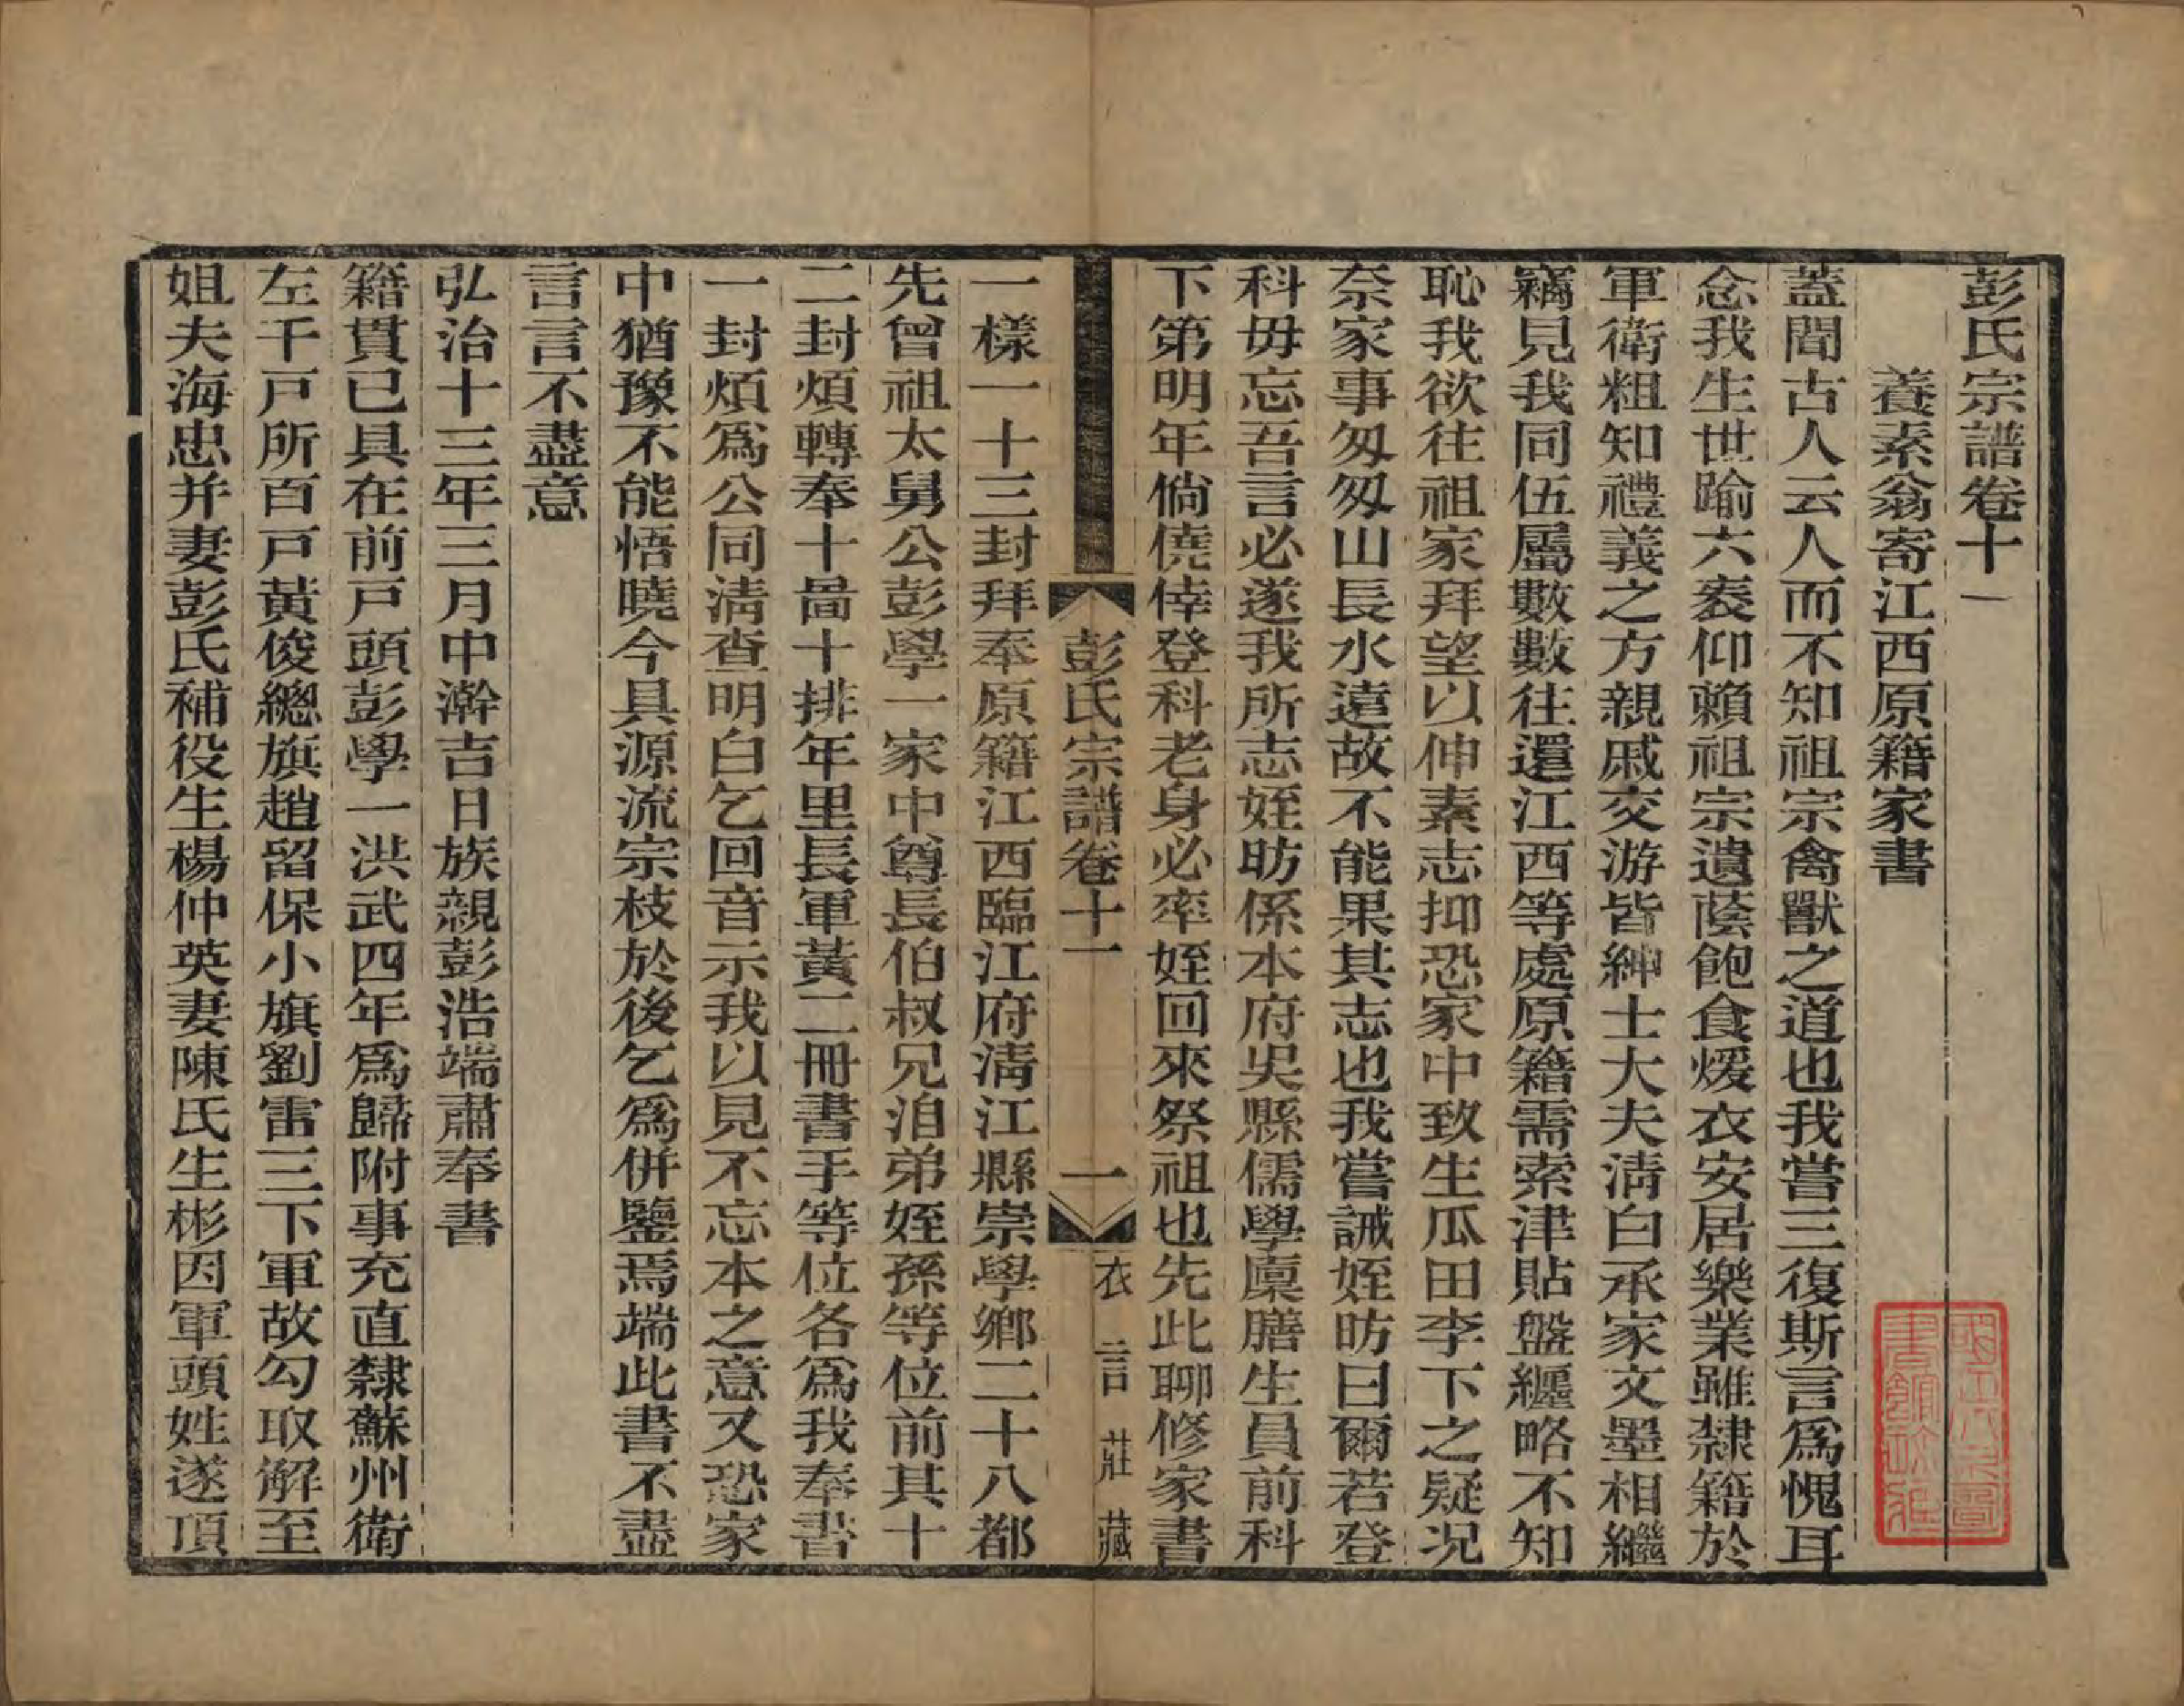 彭氏宗譜卷十一
養素翁寄江西原籍家書
蓋聞古人云人而不知祖宗禽獸之道也我嘗三復斯言爲愧耳
念我生世踰六袠仰賴祖宗遺蔭飽食煖衣安居樂業雖隸籍於
軍衛粗知禮義之方親戚交游皆紳士大夫清白承家文墨相繼
竊見我同伍屬數數往還江西等處原籍需索津貼盤纏略不知
恥我欲往祖家拜望以伸素志抑恐家中致生瓜田李下之疑况
奈家事匆匆山長水遠故不能果其志也我嘗誡姪昉曰爾若登
科毋忘吾言必遂我所志姪昉係本府吳縣儒學廩膳生員前科
下第明年倘僥倖登科老身必率姪回來祭祖也先此聊修家書
彭氏宗譜卷十一
一
衣言莊藏
一樣一十三封拜奉原籍江西臨江府清江縣崇學鄉二十八都
先曾祖太舅公彭學一家中尊長伯叔兄洎弟姪孫等位前其十
二封煩轉奉十啚十排年里長軍黃二冊書手等位各爲我奉書
一封煩爲公同清查明白乞回音示我以見不忘本之意又恐家
中猶豫不能悟曉今具源流宗枝於後乞爲併鑒焉端此書不盡
言言不盡意
弘治十三年三月中澣吉日族親彭浩端肅奉書
籍貫已具在前戸頭彭學一洪武四年爲歸附事充直隸蘇州衛
左千戸所百戸黃俊總旗趙留保小旗劉雷三下軍故勾取解至
姐夫海忠并妻彭氏補役生楊仲英妻陳氏生彬因軍頭姓遂頂